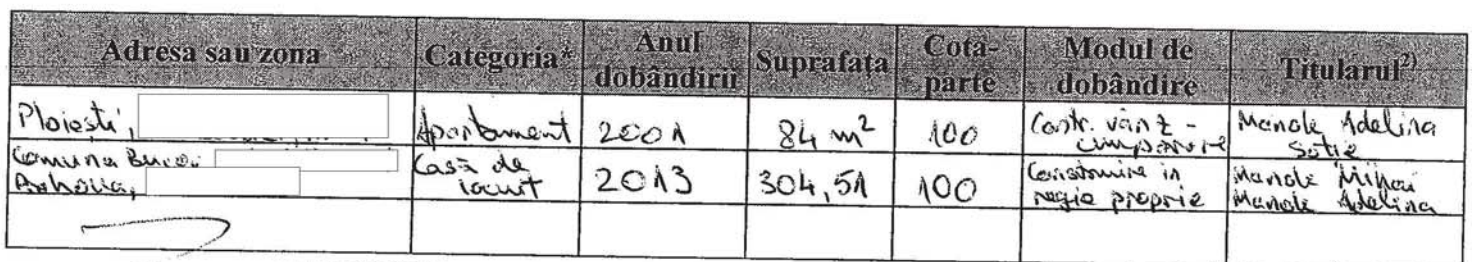 Adresa sau zona Categoria* Anul dobândirii Suprafața Cota-parte Modul de dobândire Titularul2)
Ploiesti, Apartament 2001 84 m2 100 Contr. vânz - cumparare Manole Adelina Sotie
Comuna Bucov Prahova, Casă de locuit 2013 304,51 100 Construire in regie proprie Manole Mihai Manole Adelina